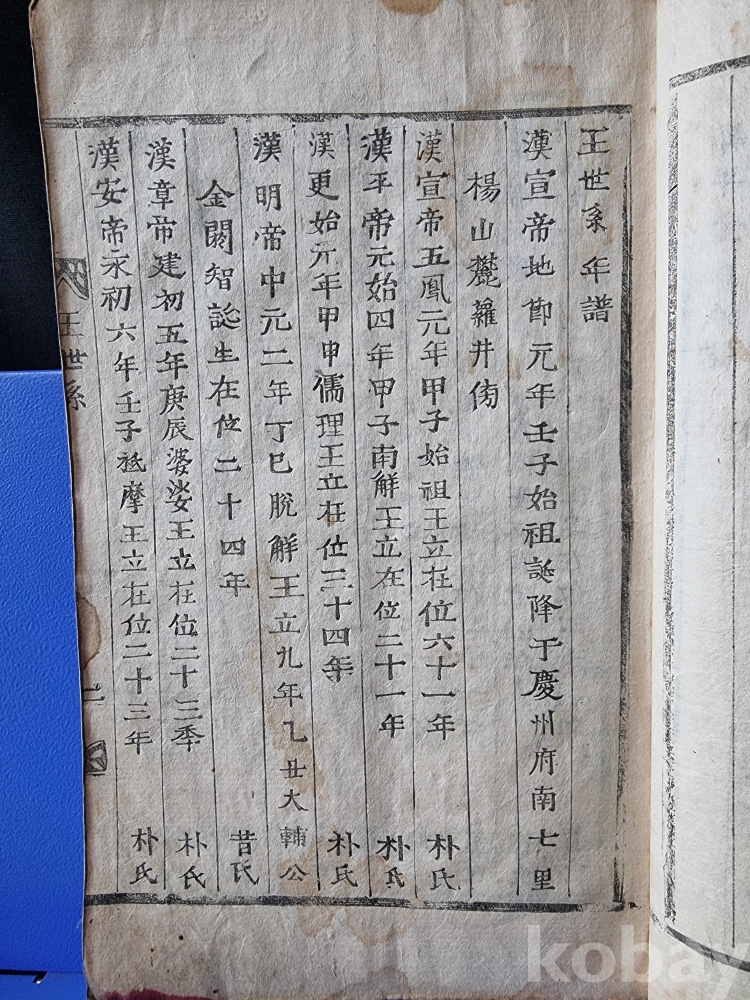 王世系年譜
漢宣帝地節元年壬子始祖誕降于慶州府南七里
楊山麓蘿井傍
漢宣帝五鳳元年甲子始祖王立在位六十一年 朴氏
漢平帝元始四年甲子南解王立在位二十一年 朴氏
漢更始元年甲申儒理王立在位三十四年 朴氏
漢明帝中元二年丁巳脫解王立九年乙丑大輔公
金閼智誕生在位二十四年 昔氏
漢章帝建初五年庚辰婆娑王立在位二十三季 朴氏
漢安帝永初六年壬子祗摩王立在位二十三年 朴氏
王世系
二
kobay